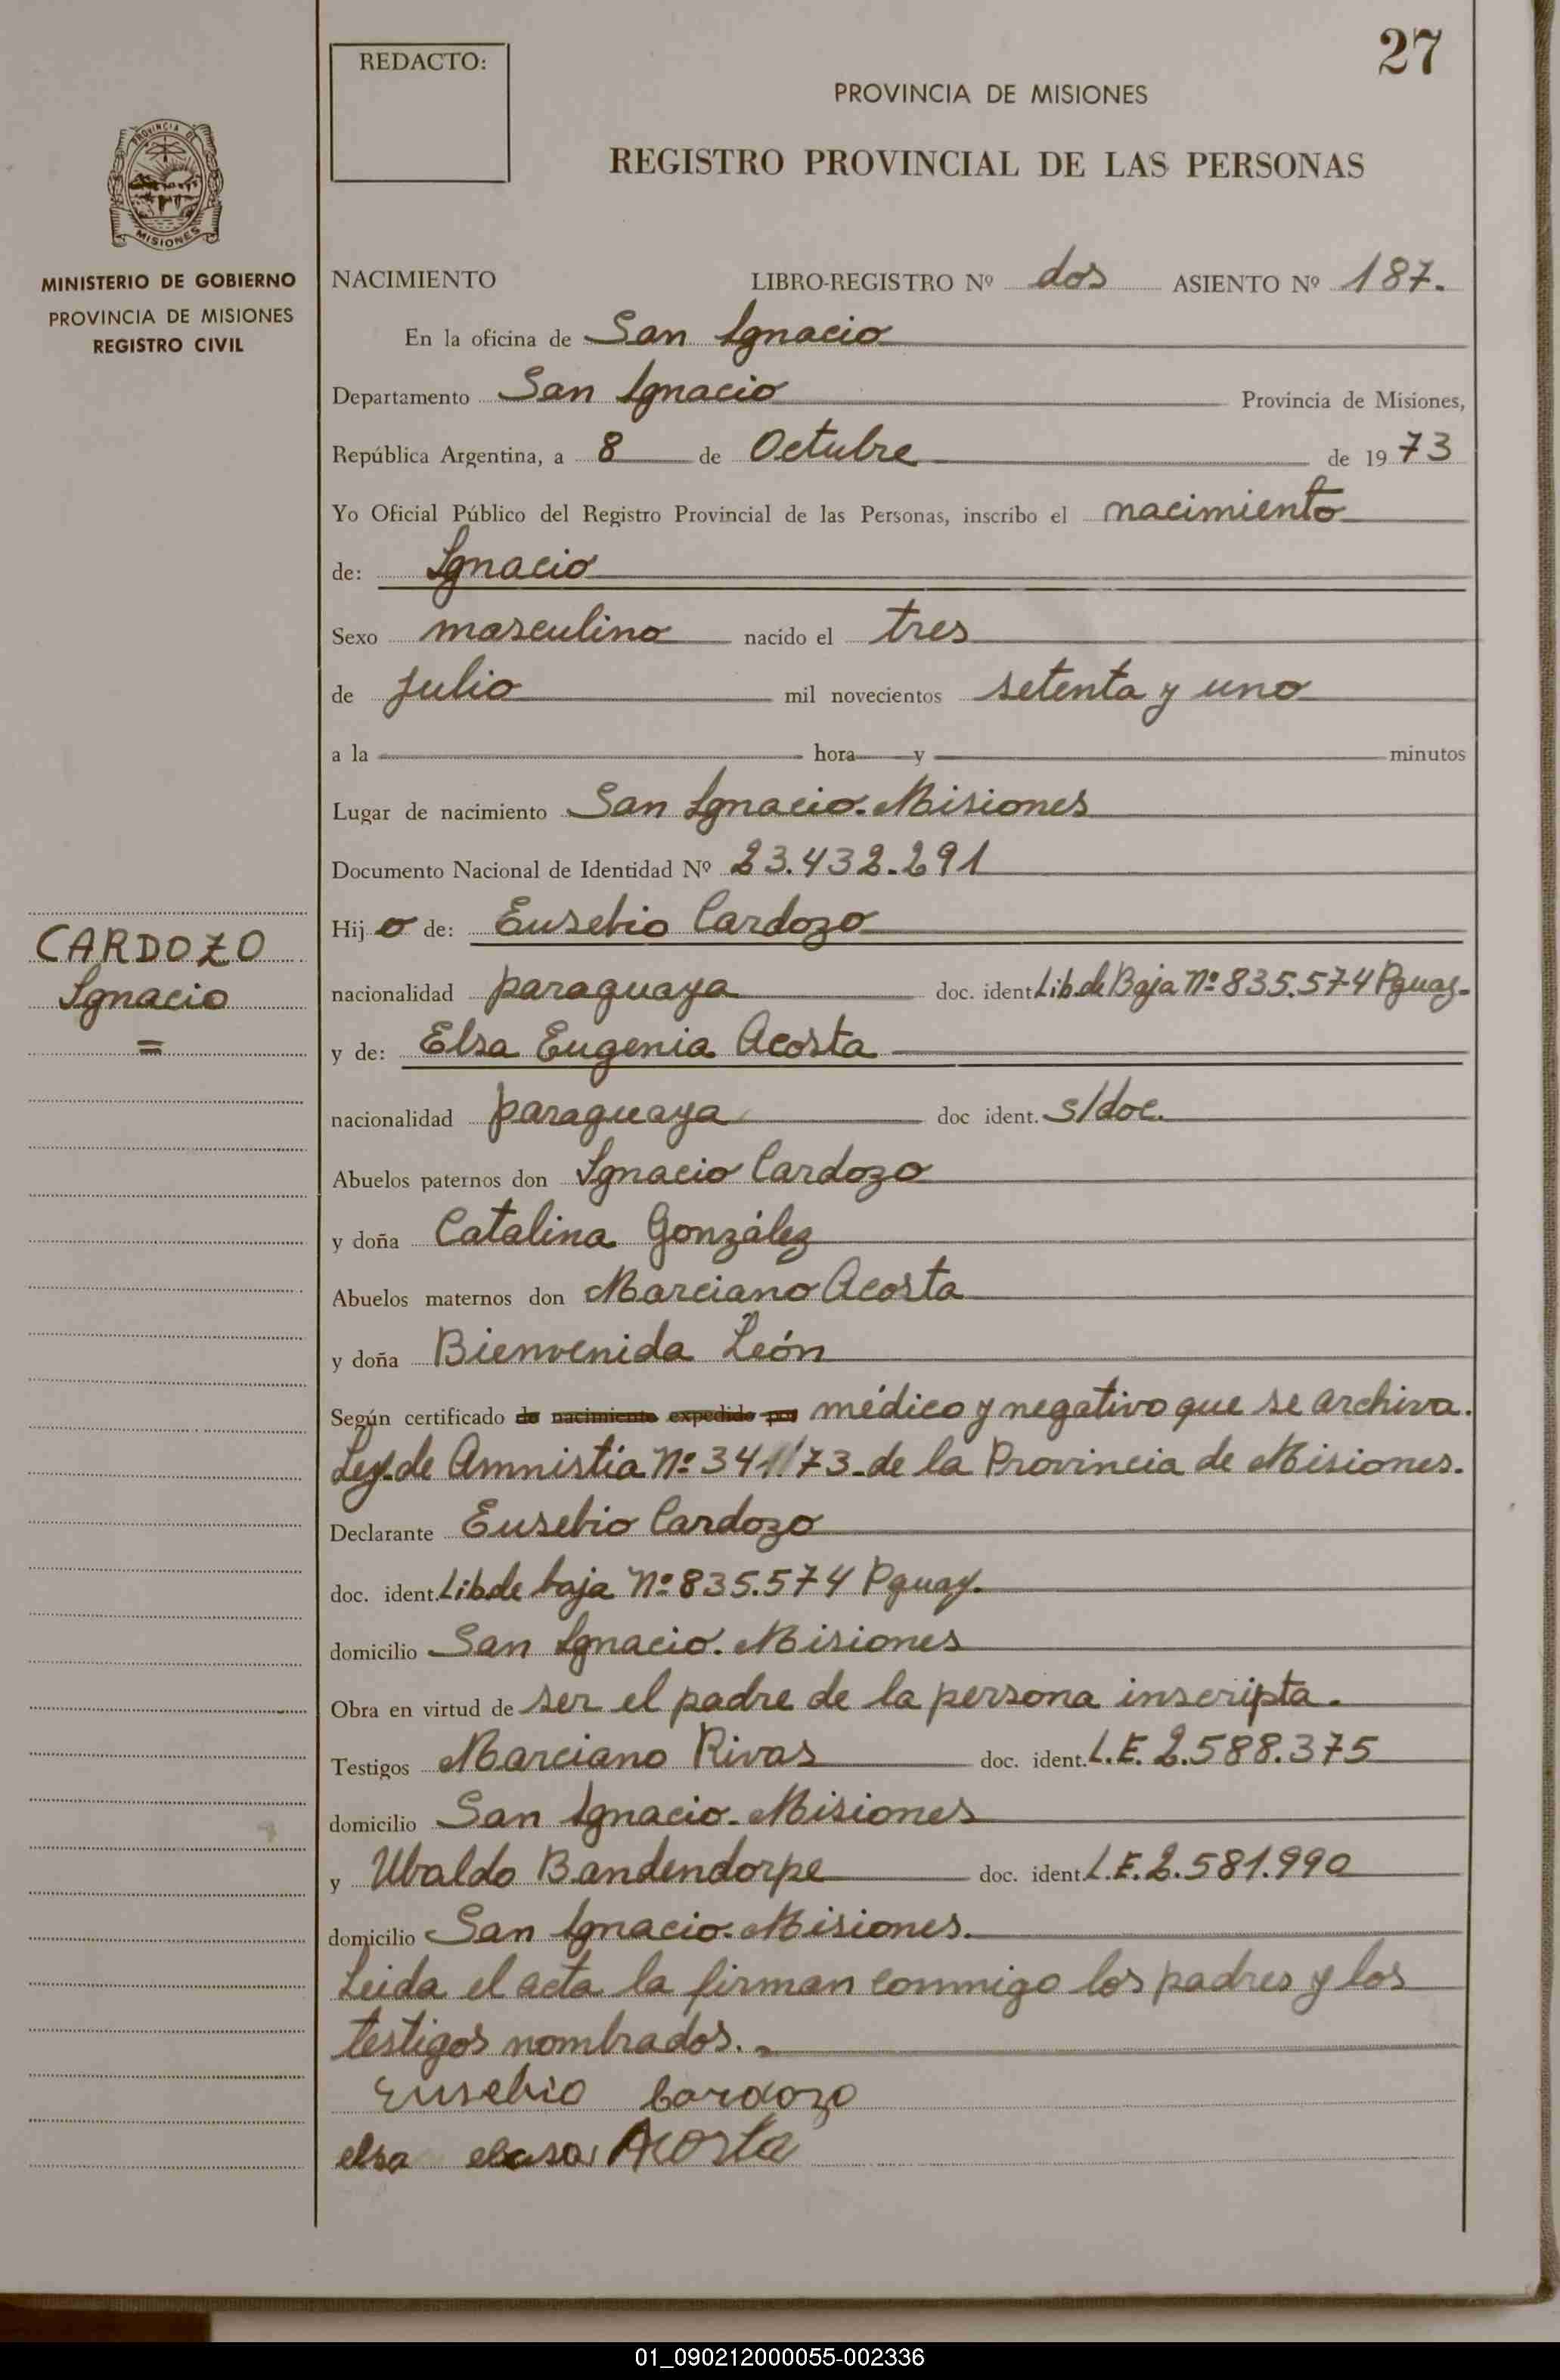 27
REDACTO:
PROVINCIA DE MISIONES
REGISTRO PROVINCIAL DE LAS PERSONAS
PROVINCIA DE
MISIONES
MINISTERIO DE GOBIERNO
PROVINCIA DE MISIONES
REGISTRO CIVIL
NACIMIENTO LIBRO-REGISTRO Nº dos ASIENTO Nº 187.
En la oficina de San Ignacio
Departamento San Ignacio Provincia de Misiones,
República Argentina, a 8 de Octubre de 1973
Yo Oficial Público del Registro Provincial de las Personas, inscribo el nacimiento
de: Ignacio
Sexo masculino nacido el tres
de julio mil novecientos setenta y uno
a la hora y minutos
Lugar de nacimiento San Ignacio. Misiones
Documento Nacional de Identidad Nº 23.432.291
CARDOZO
Ignacio
=
Hijo de: Eusebio Cardozo
nacionalidad paraguaya doc. ident. Lib de Baja Nº 835.574 Pguay.
y de: Elsa Eugenia Acosta
nacionalidad paraguaya doc ident. s/doc.
Abuelos paternos don Ignacio Cardozo
y doña Catalina González
Abuelos maternos don Marciano Acosta
y doña Bienvenida León
Según certificado de nacimiento expedido por médico y negativo que se archiva.
Ley de Amnistía Nº 341/73 de la Provincia de Misiones.
Declarante Eusebio Cardozo
doc. ident. Lib de baja Nº 835.574 Pguay.
domicilio San Ignacio. Misiones
Obra en virtud de ser el padre de la persona inscripta.
Testigos Marciano Rivas doc. ident. L.E. 2.588.375
domicilio San Ignacio. Misiones
y Ubaldo Bandendorpe doc. ident. L.E. 2.581.990
domicilio San Ignacio. Misiones.
Leida el acta la firman conmigo los padres y los
testigos nombrados.-
Eusebio Cardozo
elsa Acosta
01_090212000055-002336